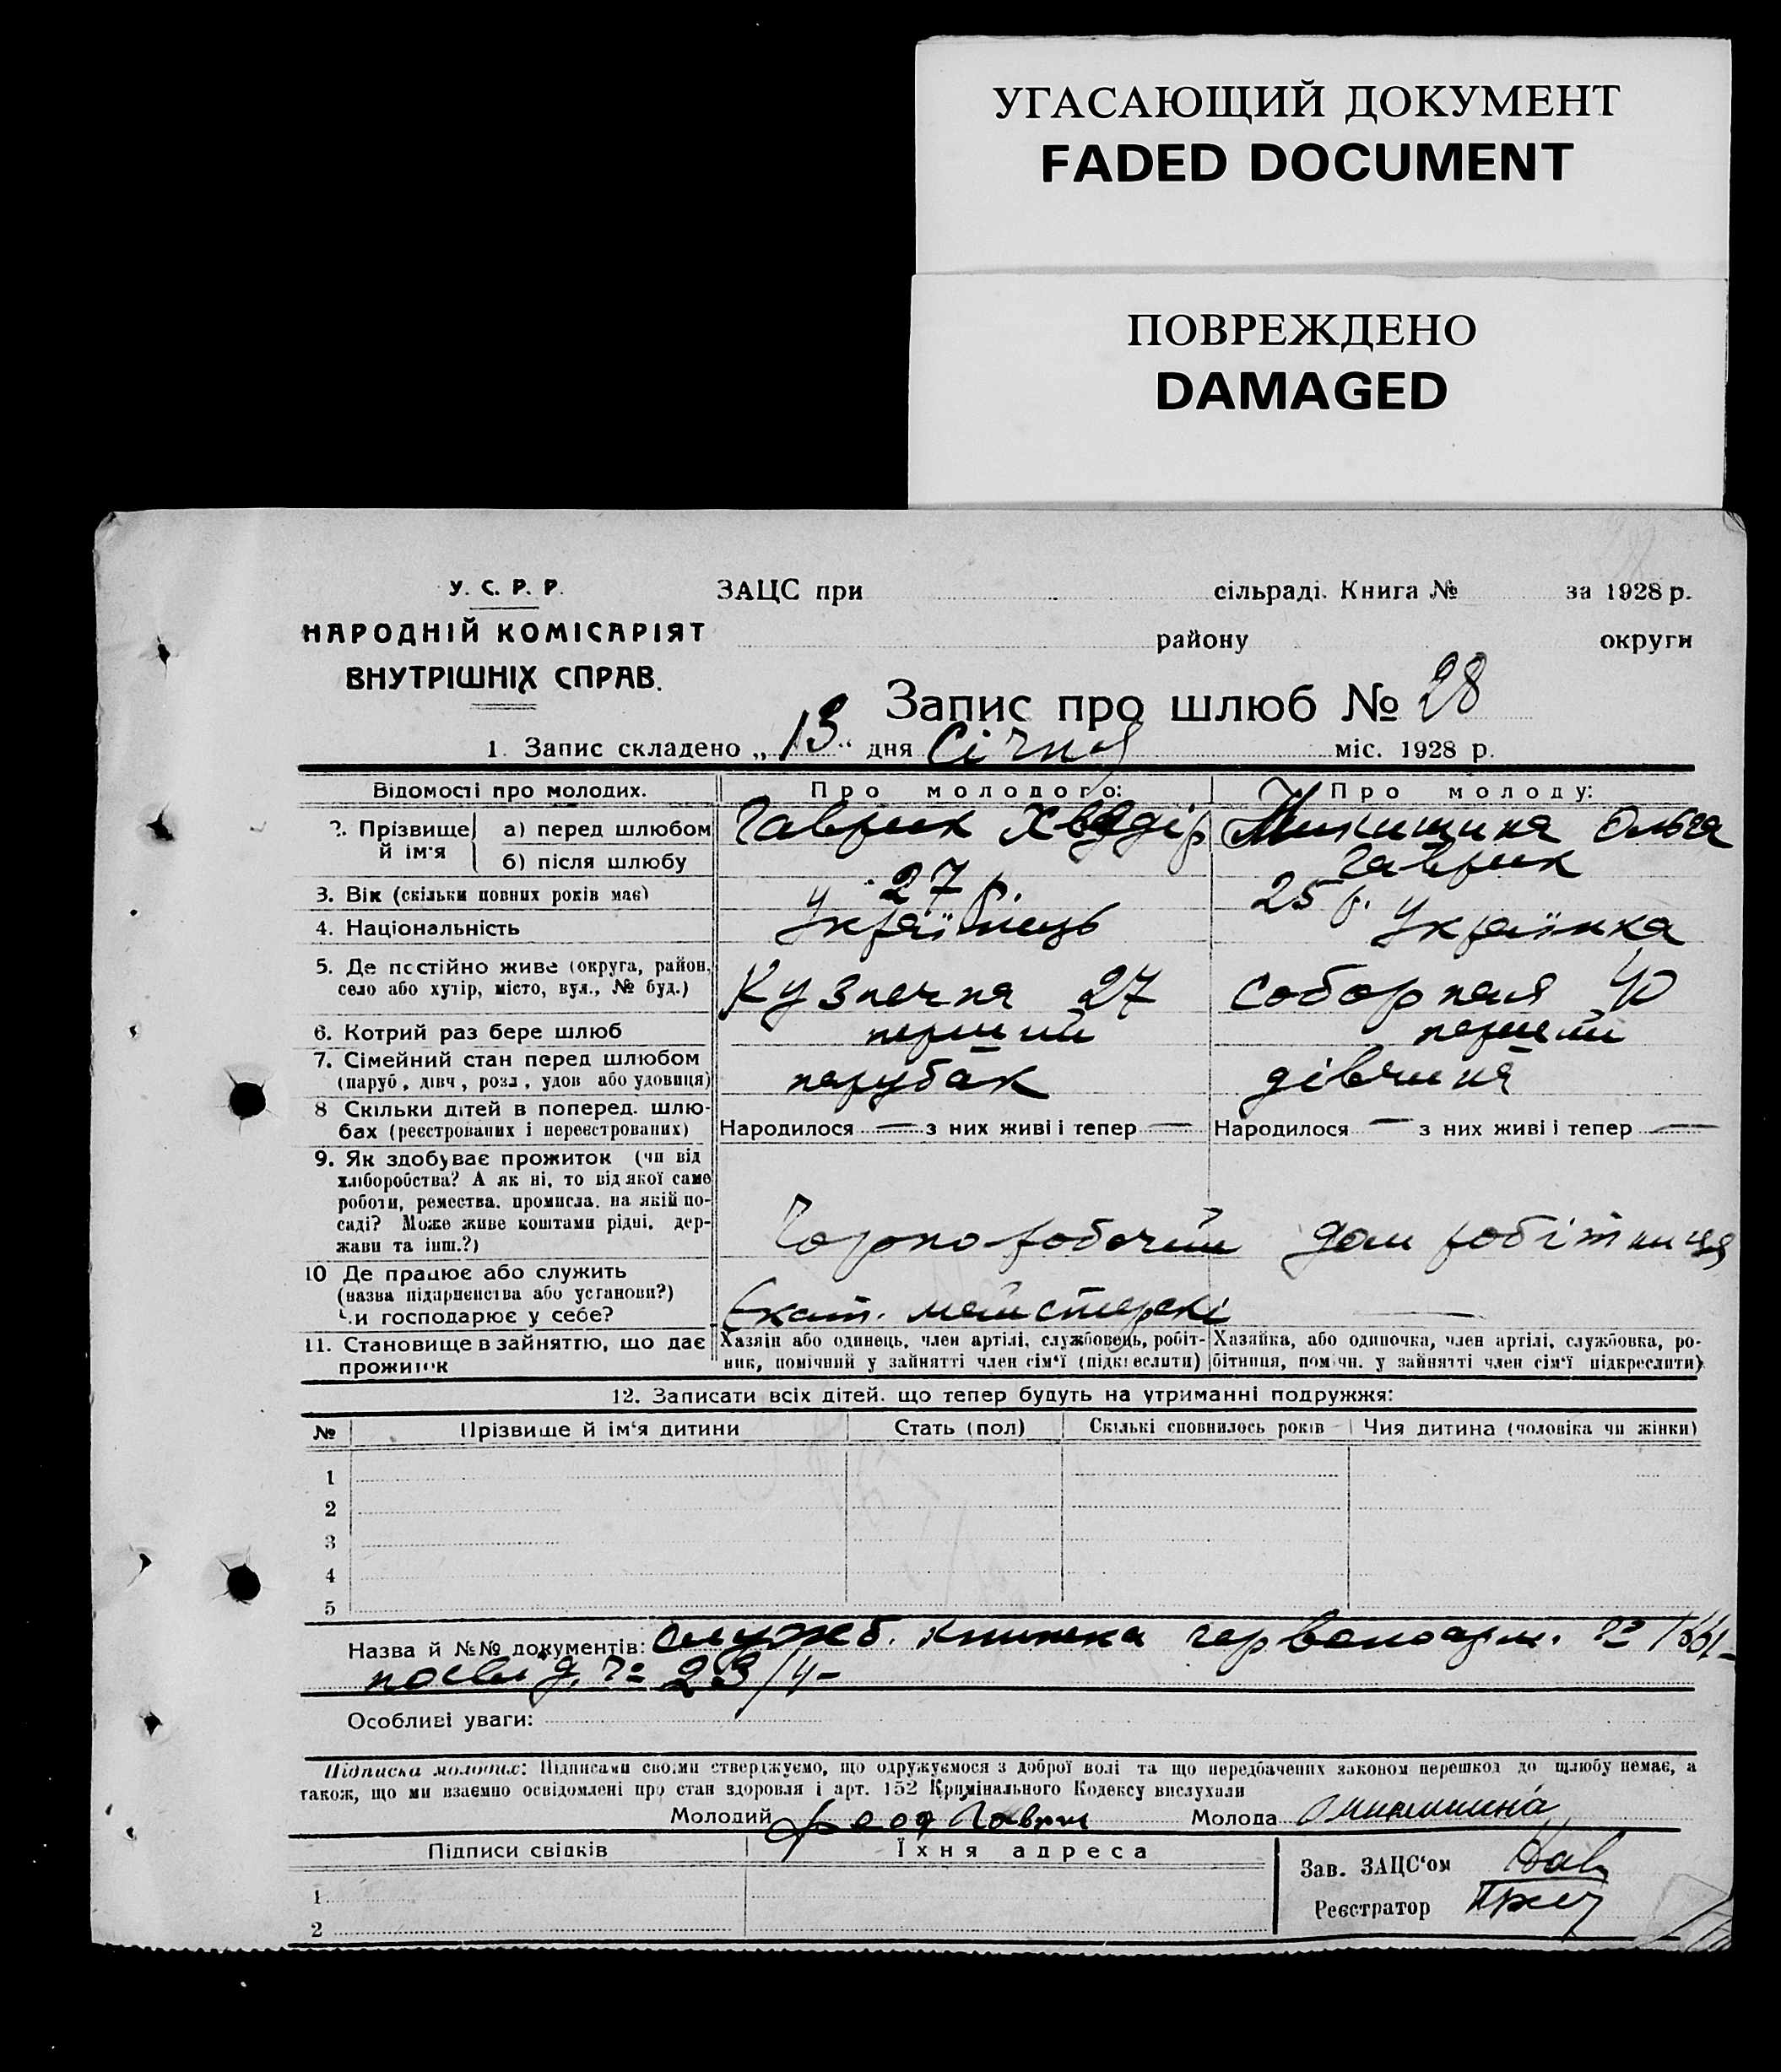 УГАСАЮЩИЙ ДОКУМЕНТ
FADED DOCUMENT
ПОВРЕЖДЕНО
DAMAGED
У. С. Р. Р.
НАРОДНІЙ КОМІСАРІЯТ
ВНУТРІШНІХ СПРАВ.
ЗАЦС при сільраді. Книга № за 1928 р.
району округи
Запис про шлюб № 28
1. Запис складено „13“ дня Січня міс. 1928 р.
Відомості про молодих. Про молодого: Про молоду:
2. Прізвище й ім'я
а) перед шлюбом Гаврик Хведір Микишина Ольга
б) після шлюбу Гаврик
3. Вік (скільки повних років має) 27 р. 25 р.
4. Національність Українець Українка
5. Де постійно живе (округа, район,
село або хутір, місто, вул., № буд.) Кузнечна 27 Соборная 40
6. Котрий раз бере шлюб перший перший
7. Сімейний стан перед шлюбом
(паруб, дівч, розл, удов або удовиця) парубак дівчина
8 Скільки дітей в поперед. шлю-
бах (реєстрованих і нереєстрованих) Народилося — з них живі і тепер — Народилося — з них живі і тепер —
9. Як здобуває прожиток (чи від
хліборобства? А як ні, то від якої саме
роботи, ремества, промисла, на якій по-
саді? Може живе коштами рідні, дер-
жави та інш.?) Чорноробочий дом робітниця
10 Де працює або служить
(назва підприємства або установи?)
Чи господарює у себе? Екат. майстерскі —
11. Становище в зайняттю, що дає
прожиток
Хазяїн або одинець, член артілі, службовець, робіт-
ник, помічний у зайнятті член сім'ї (підкреслити)
Хазяйка, або одиночка, член артілі, службовка, ро-
бітниця, помічн. у зайнятті член сім'ї підкреслити)
12. Записати всіх дітей, що тепер будуть на утриманні подружжя:
№ Прізвище й ім'я дитини Стать (пол) Скількі сповнилось років Чия дитина (чоловіка чи жінки)
1
2
3
4
5
Назва й №№ документів: Служб. книжка червоноарм.
посвід. № 23/4-
Особливі уваги:
Підписка молодих: Підписами своїми стверджуємо, що одружуємося з доброї волі та що передбачених законом перешкод до шлюбу немає, а
також, що ми взаємно освідомлені про стан здоровля і арт. 152 Кримінального Кодексу вислухали
Молодий Феод Гаврик Молода Микишина
Підписи свідків Їхня адреса
Зав. ЗАЦС'ом
Реєстратор
1
2